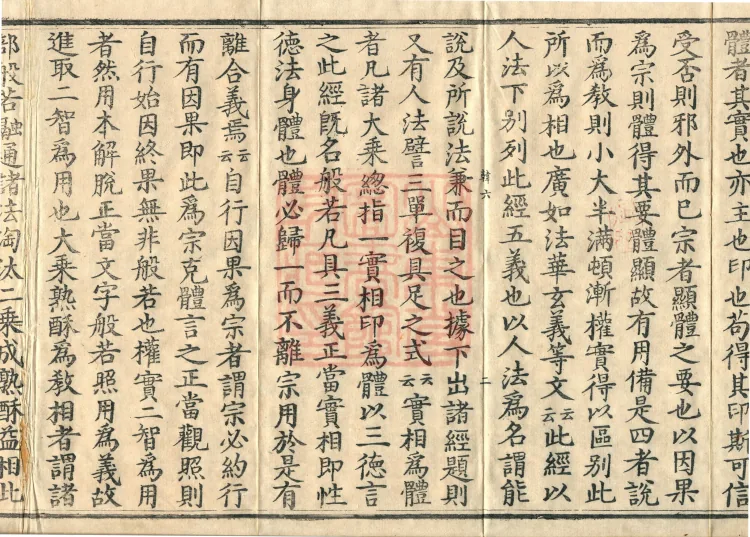 體者其實也亦主也印也苟得其印斯可信
受否則邪外而已宗者顯體之要也以因果
爲宗則體得其要體顯故有用備是四者說
而爲教則小大半滿頓漸權實得以區別此
所以爲相也廣如法華玄義等文云云此經以
人法下別列此經五義也以人法爲名謂能
二
說及所說法兼而目之也據下出諸經題則
又有人法譬三單複具足之式云云實相爲體
者凡諸大乘總指一實相印爲體以三德言
之此經旣名般若凡具三義正當實相即性
德法身體也體必歸一而不離宗用於是有
離合義焉云云自行因果爲宗者謂宗必約行
而有因果即此爲宗克體言之正當觀照則
自行始因終果無非般若也權實二智爲用
者然用本解脫正當文字般若照用爲義故
進取二智爲用也大乘熟酥爲教相者謂諸
部般若融通諸法淘汰二乘成熟酥益相此